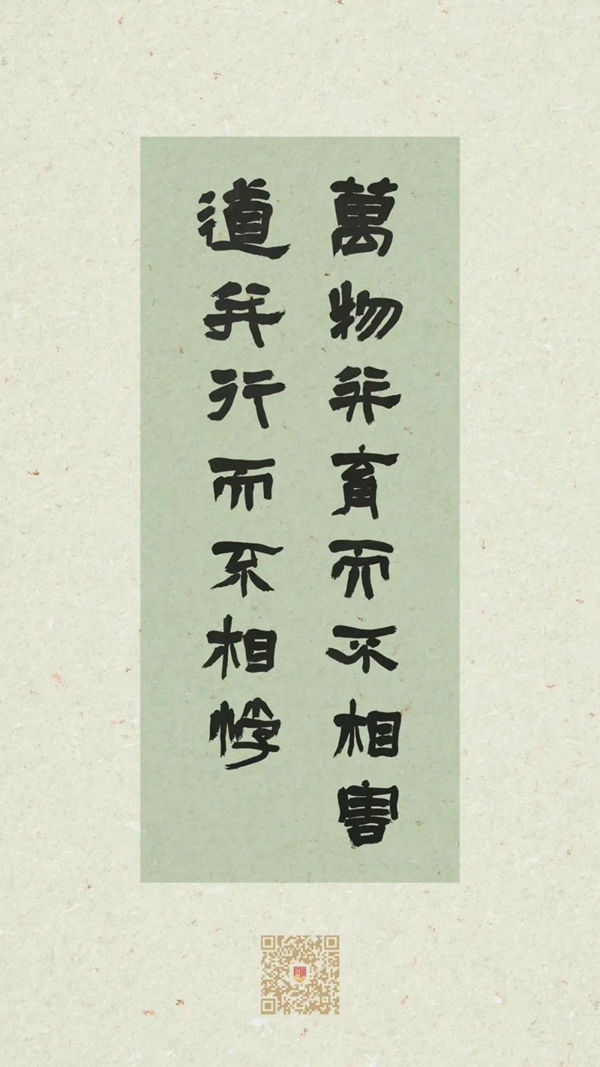 萬物并育而不相害
道并行而不相悖